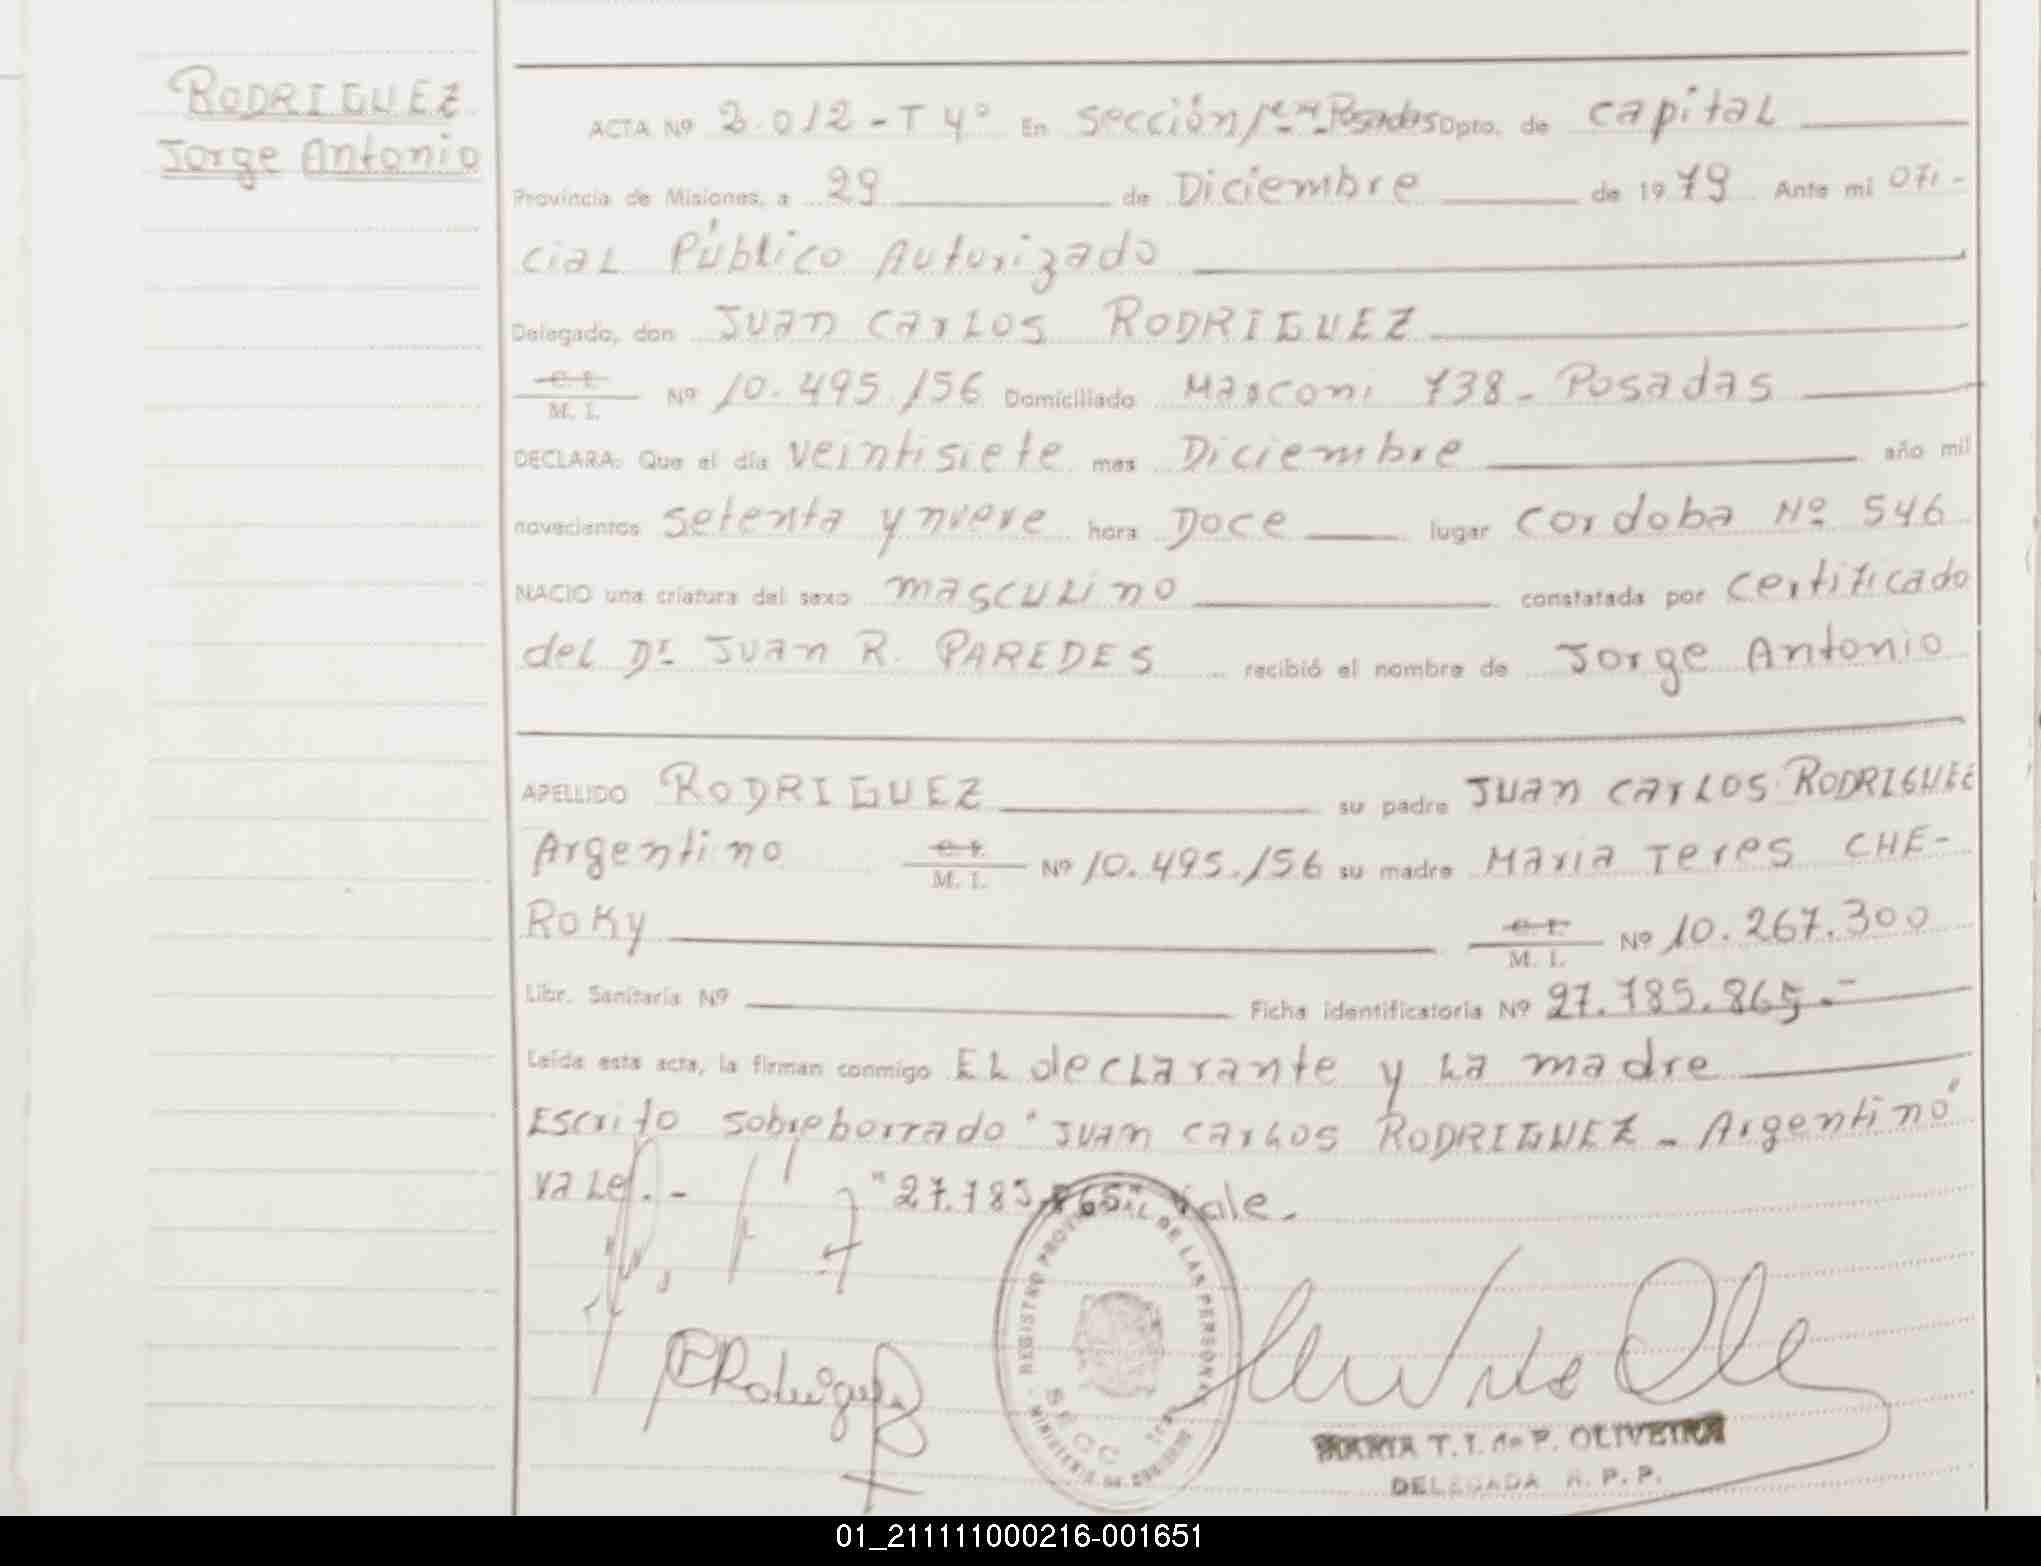 RODRIGUEZ
Jorge Antonio
ACTA Nº 2.012 - T 4º En sección 1era Posadas Dpto. de capital
Provincia de Misiones, a 29 de Diciembre de 1979 Ante mi ofi-
cial Público Autorizado
Delegado, don Juan Carlos RODRIGUEZ
C. I. M. I. Nº 10.495.156 Domiciliado Marconi 738 - Posadas
DECLARA: Que el día veintisiete mes Diciembre año mil
novecientos setenta y nueve hora Doce lugar Cordoba Nº 546
NACIO una criatura del sexo masculino constatada por certificado
del Dr Juan R. PAREDES recibió el nombre de Jorge Antonio
APELLIDO RODRIGUEZ su padre Juan Carlos RODRIGUEZ
Argentino C. I. M. I. Nº 10.495.156 su madre Maria Teres CHE-
ROKY C. I. M. I. Nº 10.267.300
Libr. Sanitaria Nº Ficha identificatoria Nº 27.785.865.-
Leída esta acta, la firman conmigo El declarante y La madre
Escrito sobreborrado "Juan Carlos RODRIGUEZ - Argentino"
vale.- "27.785.865" Vale.
REGISTRO PROVINCIAL DE LAS PERSONAS
T. I. de P. OLIVEIRA
DELEGADA R. P. P.
01_211111000216-001651